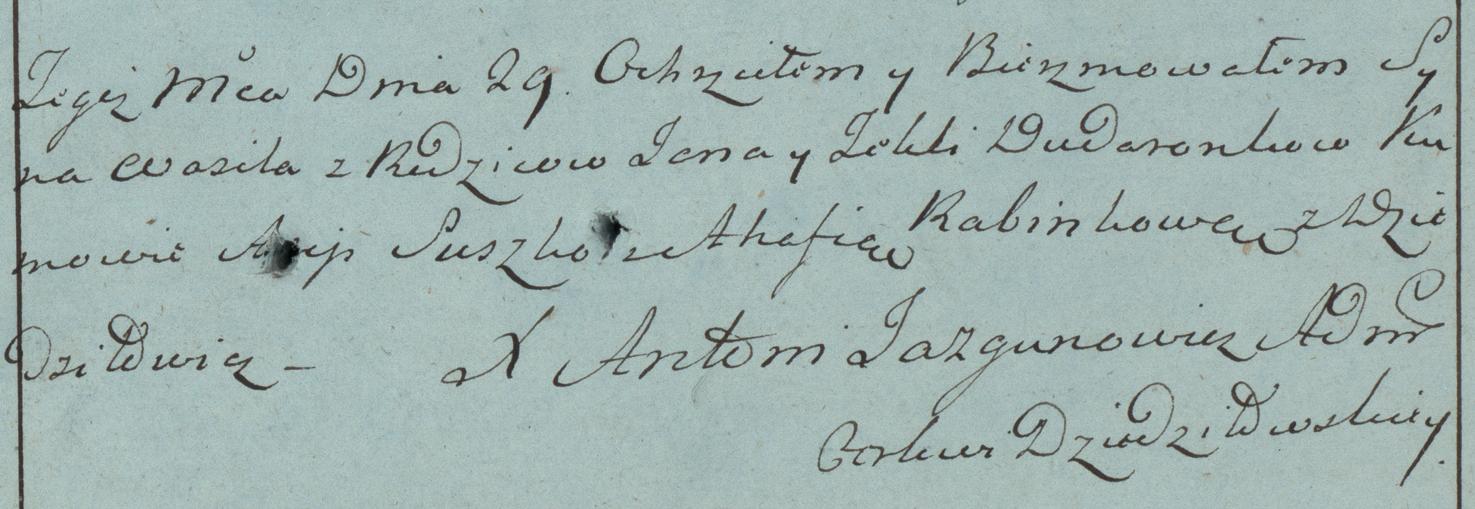 Tegoż Mca Dnia 29. Ochrzciłem y Bierzmowałem Sy
na Wasila z Rodzicow Jana y Tekli Dudaronkow Ku
mowie Suszko z Ahafią Rabinkową z Dzie
dziłowicz –
X Antoni Jazgunowicz Adm
Cerkwi Dziedziłowskiey.